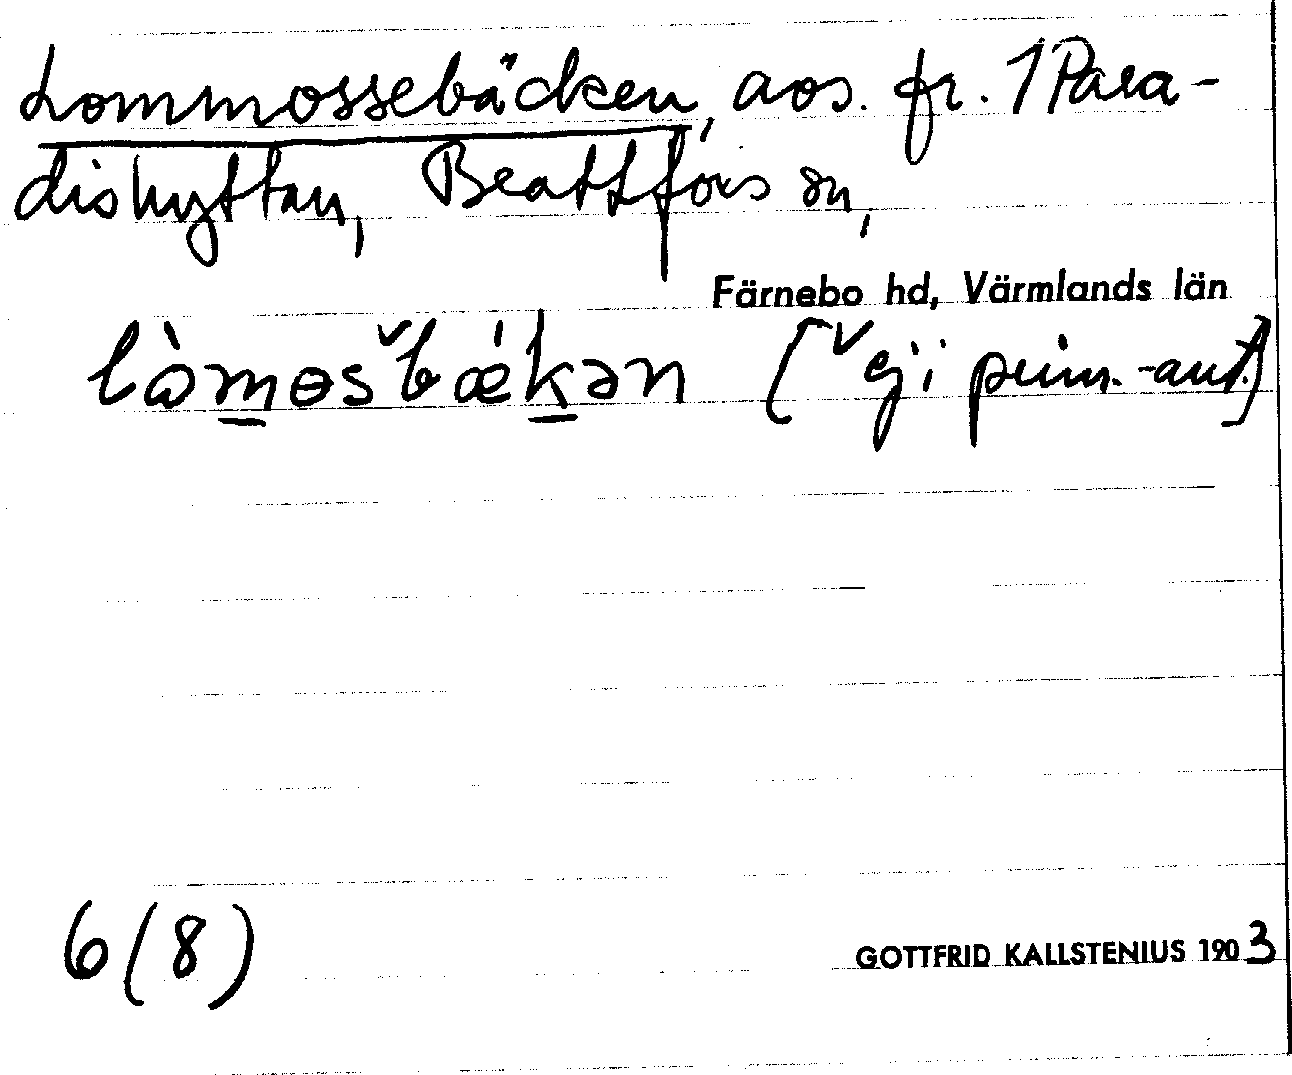 Lommossebäcken, aos. fr. 1 Para-
dishyttan, Beattfors sn,
Färnebo hd, Värmlands län
lòmosˇbækən (ˇ ej i prim.-ant.)
6 (8)
GOTTFRID KALLSTENIUS 1903